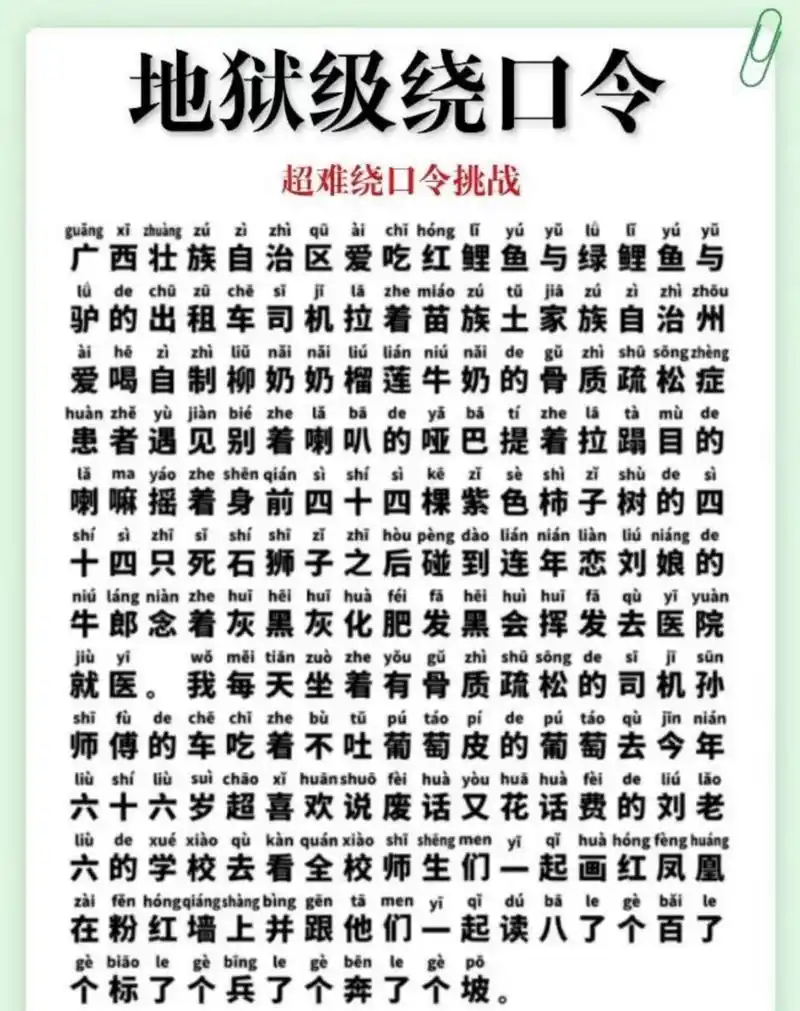 地狱级绕口令
超难绕口令挑战
guǎng xī zhuàng zú zì zhì qū ài chī hóng lǐ yú yǔ lǜ lǐ yú yǔ
广西壮族自治区爱吃红鲤鱼与绿鲤鱼与
lǘ de chū zū chē sī jī lā zhe miáo zú tǔ jiā zú zì zhì zhōu
驴的出租车司机拉着苗族土家族自治州
ài hē zì zhì liǔ nǎi nǎi liú lián niú nǎi de gǔ zhì shū sōng zhèng
爱喝自制柳奶奶榴莲牛奶的骨质疏松症
huàn zhě yù jiàn bié zhe lǎ bā de yǎ bā tí zhe lā tà mù de
患者遇见别着喇叭的哑巴提着拉蹋目的
lǎ ma yáo zhe shēn qián sì shí sì kē zǐ sè shì zǐ shù de sì
喇嘛摇着身前四十四棵紫色柿子树的四
shí sì zhī sǐ shí shī zǐ zhī hòu pèng dào lián nián liàn liú niáng de
十四只死石狮子之后碰到连年恋刘娘的
niú láng niàn zhe huī hēi huī huà féi fā hēi huì huī fā qù yī yuàn
牛郎念着灰黑灰化肥发黑会挥发去医院
jiù yī wǒ měi tiān zuò zhe yǒu gǔ zhì shū sōng de sī jī sūn
就医。我每天坐着有骨质疏松的司机孙
shī fù de chē chī zhe bù tǔ pú táo pí de pú táo qù jīn nián
师傅的车吃着不吐葡萄皮的葡萄去今年
liù shí liù suì chāo xǐ huān shuō fèi huà yòu huā huà fèi de liú lǎo
六十六岁超喜欢说废话又花话费的刘老
liù de xué xiào qù kàn quán xiào shī shēng men yī qǐ huà hóng fèng huáng
六的学校去看全校师生们一起画红凤凰
zài fěn hóng qiáng shàng bìng gēn tā men yī qǐ dú bā le gè bǎi le
在粉红墙上并跟他们一起读八了个百了
gè biāo le gè bīng le gè bēn le gè pō
个标了个兵了个奔了个坡。